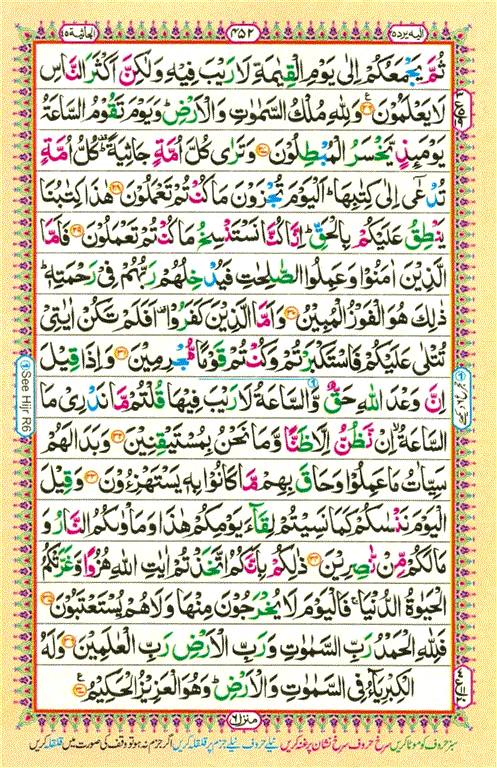 اليه يرده ٢٥
٤٥٢
الجاثية ٤٥
ثُمَّ يَجْمَعُكُمْ اِلٰى يَوْمِ الْقِيٰمَةِ لَا رَيْبَ فِيْهِ وَلٰكِنَّ اَكْثَرَ النَّاسِ
لَا يَعْلَمُوْنَ ۝٢٦ وَلِلّٰهِ مُلْكُ السَّمٰوٰتِ وَالْاَرْضِ ؕ وَيَوْمَ تَقُوْمُ السَّاعَةُ
يَوْمَئِذٍ يَّخْسَرُ الْمُبْطِلُوْنَ ۝٢٧ وَتَرٰى كُلَّ اُمَّةٍ جَاثِيَةً ۫ كُلُّ اُمَّةٍ
تُدْعٰۤى اِلٰى كِتٰبِهَا ؕ اَلْيَوْمَ تُجْزَوْنَ مَا كُنْتُمْ تَعْمَلُوْنَ ۝٢٨ هٰذَا كِتٰبُنَا
يَنْطِقُ عَلَيْكُمْ بِالْحَقِّ ؕ اِنَّا كُنَّا نَسْتَنْسِخُ مَا كُنْتُمْ تَعْمَلُوْنَ ۝٢٩ فَاَمَّا
الَّذِيْنَ اٰمَنُوْا وَعَمِلُوا الصّٰلِحٰتِ فَيُدْخِلُهُمْ رَبُّهُمْ فِيْ رَحْمَتِهٖ ؕ
ذٰلِكَ هُوَ الْفَوْزُ الْمُبِيْنُ ۝٣٠ وَاَمَّا الَّذِيْنَ كَفَرُوْا ۟ اَفَلَمْ تَكُنْ اٰيٰتِيْ
تُتْلٰى عَلَيْكُمْ فَاسْتَكْبَرْتُمْ وَكُنْتُمْ قَوْمًا مُّجْرِمِيْنَ ۝٣١ وَاِذَا قِيْلَ
اِنَّ وَعْدَ اللّٰهِ حَقٌّ وَّالسَّاعَةُ لَا رَيْبَ فِيْهَا قُلْتُمْ مَّا نَدْرِيْ مَا
السَّاعَةُ ۙ اِنْ نَّظُنُّ اِلَّا ظَنًّا وَّمَا نَحْنُ بِمُسْتَيْقِنِيْنَ ۝٣٢ وَبَدَا لَهُمْ
سَيِّاٰتُ مَا عَمِلُوْا وَحَاقَ بِهِمْ مَّا كَانُوْا بِهٖ يَسْتَهْزِءُوْنَ ۝٣٣ وَقِيْلَ
الْيَوْمَ نَنْسٰىكُمْ كَمَا نَسِيْتُمْ لِقَآءَ يَوْمِكُمْ هٰذَا وَمَاْوٰىكُمُ النَّارُ وَ
مَا لَكُمْ مِّنْ نّٰصِرِيْنَ ۝٣٤ ذٰلِكُمْ بِاَنَّكُمُ اتَّخَذْتُمْ اٰيٰتِ اللّٰهِ هُزُوًا وَّغَرَّتْكُمُ
الْحَيٰوةُ الدُّنْيَا ۚ فَالْيَوْمَ لَا يُخْرَجُوْنَ مِنْهَا وَلَا هُمْ يُسْتَعْتَبُوْنَ ۝٣٥
فَلِلّٰهِ الْحَمْدُ رَبِّ السَّمٰوٰتِ وَرَبِّ الْاَرْضِ رَبِّ الْعٰلَمِيْنَ ۝٣٦ وَلَهُ
الْكِبْرِيَآءُ فِي السَّمٰوٰتِ وَالْاَرْضِ ۪ وَهُوَ الْعَزِيْزُ الْحَكِيْمُ ۝٣٧
See Hijr R6
منزل ٦
سبز حروف کو موٹا کریں سرخ حروف سرخ نشان پر غنہ کریں نیلے حروف نیلے جزم پر قلقلہ کریں اگر جزم نہ ہو تو وقف کی صورت میں قلقلہ کریں